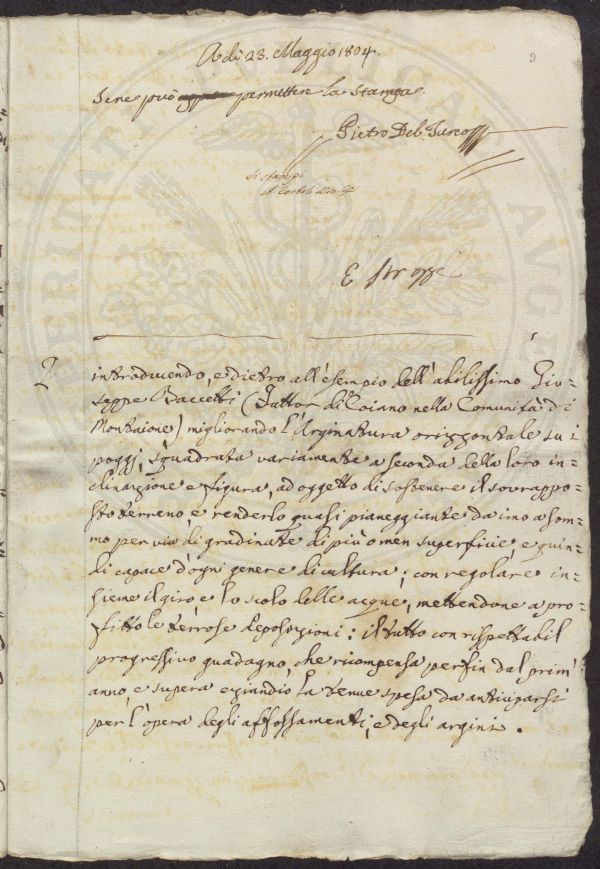 9
Adì 23. Maggio 1804.
Se ne può permettere la Stampa
Pietro Del Turco
Si stampi
E
2
introducendo, e dietro all'esempio dell'abilissimo Giu=
seppe Baccetti (Fattor di Coiano nella Comunità di
Montaione) migliorando l'Arginatura orizzontale su i
poggi, squadrata variamente a seconda della loro in=
clinazione e figura, ad oggetto di sostenere il sovrappo=
sto terreno, e renderlo quasi pianeggiante da imo a som=
mo per via di gradinate di più o men superficie, e quin=
di capace d'ogni genere di cultura; con regolare in=
sieme il giro e lo scolo delle acque, mettendone a pro=
fitto le terrose deposizioni: il tutto con rispettabil
progressivo guadagno, che ricompensa perfin dal prim'
anno, e supera eziandio la tenue spesa da anticiparsi
per l'opera degli affossamenti, e degli argini.
VERITATI
PUBLICAE
AUG